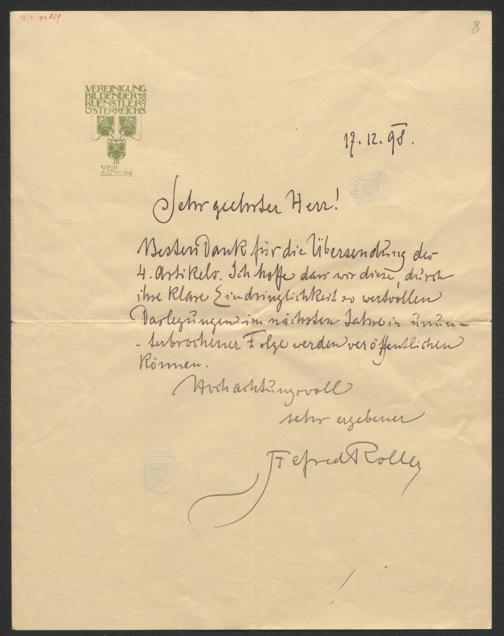 8
VEREINIGUNG
BILDENDER
KUENSTLER
ÖSTERREICHS
VER
SACRUM
17.12.98.
Sehr geehrter Herr!
Besten Dank für die Übersendung des
4. Artikels. Ich hoffe dass wir diese, durch
ihre klare Eindringlichkeit so wertvollen
Darlegungen im nächsten Jahre in unun-
-terbrochener Folge werden veröffentlichen
können.
Hochachtungsvoll
sehr ergebener
Alfred Roller